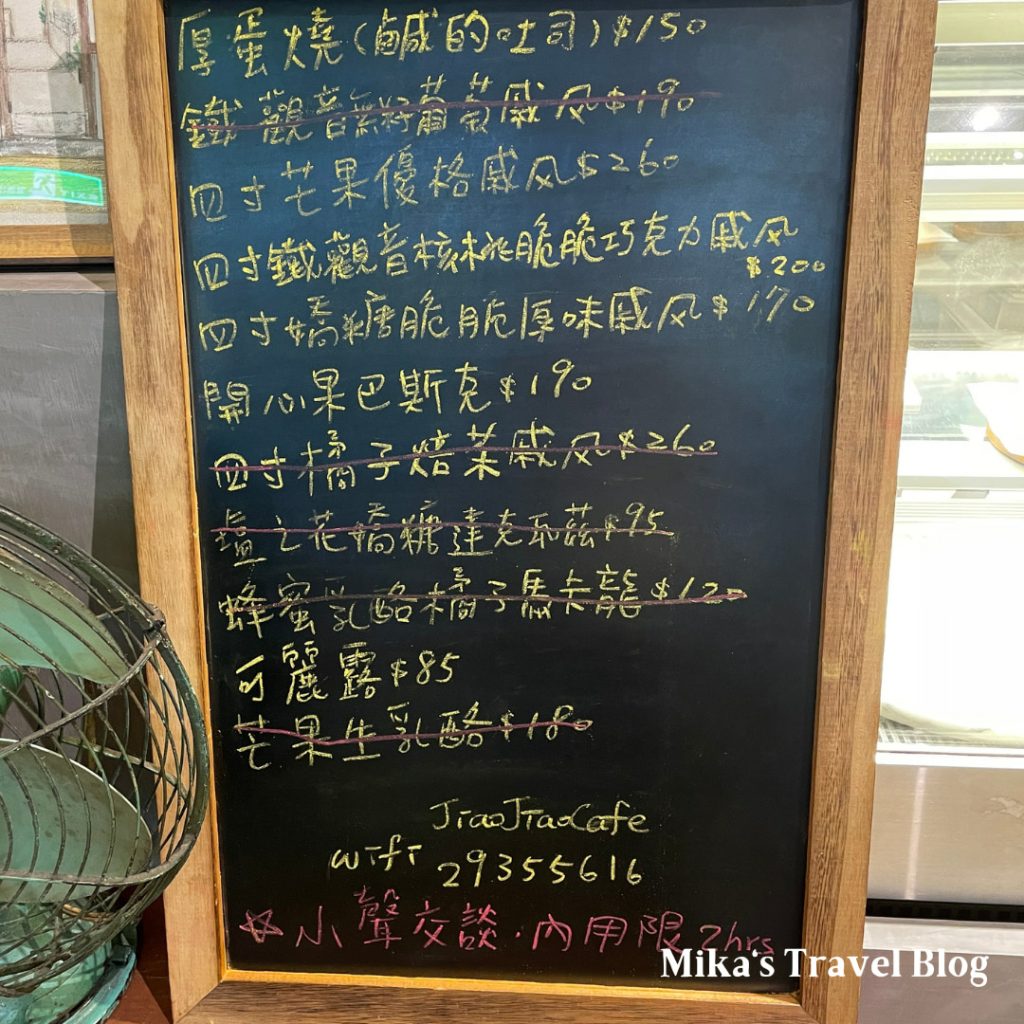 厚蛋燒(鹹的吐司)$150
鐵觀音無籽葡萄戚风$190
四寸芒果優格戚风$260
四寸鐵觀音核桃脆脆巧克力戚风
$200
四寸焦糖脆脆厚味戚风$170
開心果巴斯克$190
四寸橘子焙茶戚风$260
塩之花焦糖達克瓦茲$95
蜂蜜乳酪橘子馬卡龍$120
可麗露$85
芒果生乳酪$180
JiaoJiaoCafe
wifi 29355616
☆小聲交談.內用限2hrs
Mika's Travel Blog